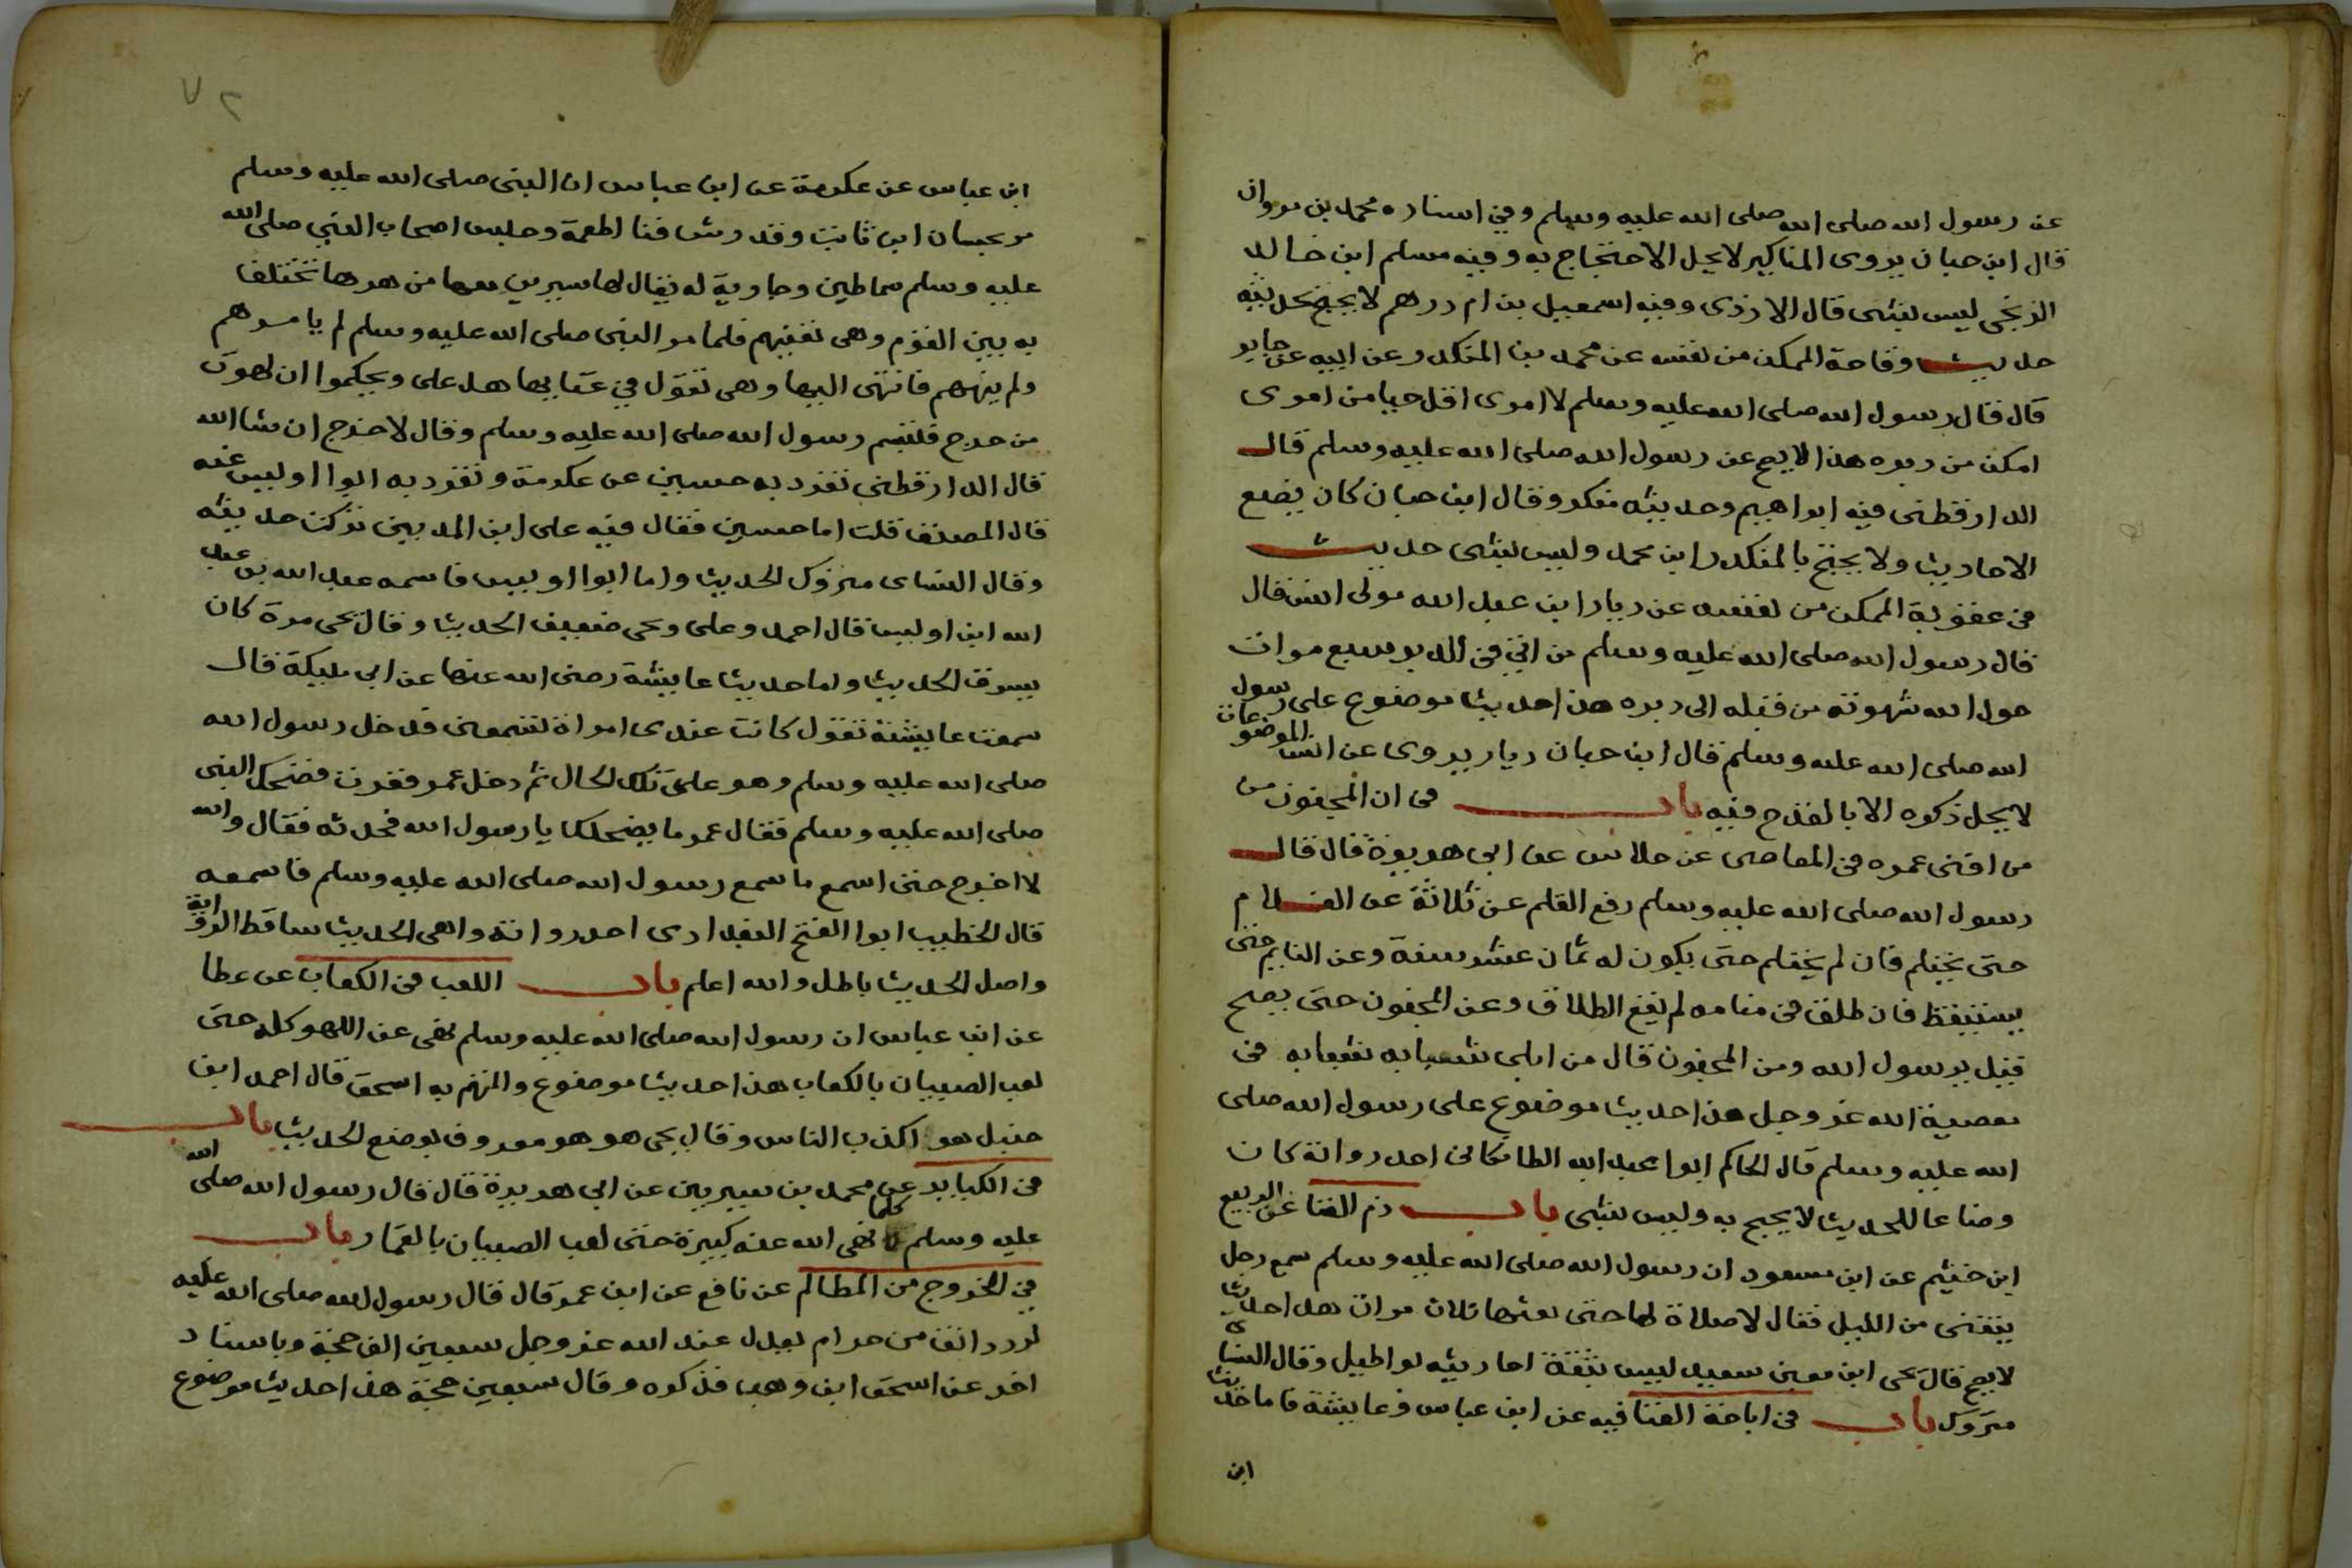 عن رسول الله صلى الله صلى الله عليه وسلم وفي اسناده محمد بن مروان
قال ابن حبان يروى المناكير لا يحل الاحتجاج به وفيه مسلم ابن خالد
الزنجي ليس بشى قال الازدى وفيه اسمعيل بن ام درهم لا يحتج بحديثه
حديث وقاحة الممكن من نفسه عن محمد بن المنكدر عن ابيه عن جابر
قال قال رسول الله صلى الله عليه وسلم لا امرى اقل حيا من امرى
امكن من دبره هذا لا يصح عن رسول الله صلى الله عليه وسلم قال
الدارقطنى فيه ابراهيم وحديثه منكر وقال ابن حبان كان يضع
الاحاديث ولا يحتج بالمنكدر ابن محمد وليس بشى حديث
فى عقوبة الممكن من نفسه عن دينار ابن عبد الله مولى انس قال
قال رسول الله صلى الله عليه وسلم من اتي فى الدبر سبع مرات
حول الله شهوته من قبله الى دبره هذا حديث موضوع على رسول
الله صلى الله عليه وسلم قال ابن حبان دينار يروى عن انس الموضوعات
لا يحل ذكره الا بالقدح فيه باب فى ان المجنون من
من افنى عمره فى المعاصى عن خلاس عن ابي هريرة قال قال
رسول الله صلى الله عليه وسلم رفع القلم عن ثلاثة عن الغلام
حتى يحتلم فان لم يحتلم حتى يكون له ثمان عشر سنة وعن النايم حتى
يستيقظ فان طلق فى منامه لم يقع الطلاق وعن المجنون حتى يصح
قيل يرسول الله ومن المجنون قال من ابلى شبابه فى
معصية الله عز وجل هذا حديث موضوع على رسول الله صلى
الله عليه وسلم قال الحاكم ابوا عبد الله الطايكانى احد رواته كان
وضاعا للحديث لا يحج به وليس بشى باب ذم الغنا عن الربيع
ابن خثيم عن ابن مسعود ان رسول الله صلى الله عليه وسلم سمع رجل
يتغنى من الليل فقال لا صلاة لها حتى مثلها ثلاث مرات هذا حديث
لا يصح قال يحى ابن معين سعيد ليس بثقة احاديثه بواطيل وقال النساى
متروك باب فى اباحة الغنا فيه عن ابن عباس وعايشة فاما حديث
ابن
٧٢
ابن عباس عن عكرمة عن ابن عباس ان النبى صلى الله عليه وسلم
مر بحسان ابن ثابت وقد رش فنا اطعمة وجلس اصحاب النبي صلى الله
عليه وسلم سماطين وجارية له يقال لها سيرين معها مزهرها تختلف
به بين القوم وهى تغنيهم فلما مر النبى صلى الله عليه وسلم لم يامرهم
ولم ينههم فانتهى اليها وهى تقول في غنايها هل على ويحكموا ان لهوت
من حرج فتبسم رسول الله صلى الله عليه وسلم وقال لا حرج ان شا الله
قال الدارقطنى تفرد به حسين عن عكرمة وتفرد به ابوا اويس عنه
قال المصنف قلت اما حسين فقال فيه على ابن المدينى تركت حديثه
وقال النساى متروك الحديث واما ابوا اويس فاسمه عبد الله بن عبد
الله ابن اويس قال احمد وعلى ويحى ضعيف الحديث وقال يحى مرة كان
يسرق الحديث واما حديث عايشة رضى الله عنها عن ابي مليكة قال
سمعت عايشة تقول كانت عندى امراة تسمعنى فدخل رسول الله
صلى الله عليه وسلم وهو على تلك الحال ثم دخل عمر ففرت فضحك النبى
صلى الله عليه وسلم فقال عمر ما يضحكك يا رسول الله فحدثه فقال والله
لا اخرج حتى اسمع ما سمع رسول الله صلى الله عليه وسلم فاسمعه
قال الخطيب ابوا الفتح البغدادى احد رواته واهى الحديث ساقط الرواية
واصل الحديث باطل والله اعلم باب اللعب فى الكعاب عن عطا
عن ابن عباس ان رسول الله صلى الله عليه وسلم نهى عن اللهو كله حتى
لعب الصبيان بالكعاب هذا حديث موضوع والمتهم به اسحق قال احمد ابن
حنبل هو اكذب الناس وقال يحى هو هو معروف بوضع الحديث باب
فى الكباير عن محمد بن سيرين عن ابي هريرة قال قال رسول الله صلى الله
عليه وسلم كلما نهى الله عنه كبيرة حتى لعب الصبيان بالقمار باب
في الخروج من المظالم عن نافع عن ابن عمر قال قال رسول الله صلى الله عليه
لرد دانق من حرام يعدل عند الله عز وجل سبعين الف حجة وباسناد
اخر عن اسحق ابن وهب فذكره وقال سبعين حجة هذا حديث موضوع